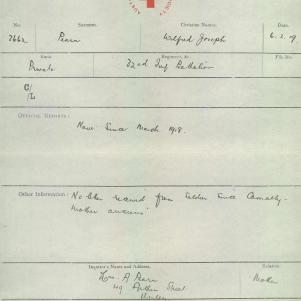 No. Surname. Christian Names. Date.
2662 Pearn Wilfred Joseph 6.2.19
Rank Regiment, &c. File No.
Private 32nd Inf Battalion
OFFICIAL REPORTS:
None since March 1918.
Other Information: No letter received from Soldier since Casualty.
Mother anxious.
Inquirer's Name and Address. Relation.
Mrs. A Pearn Mother
49 Arthur Street